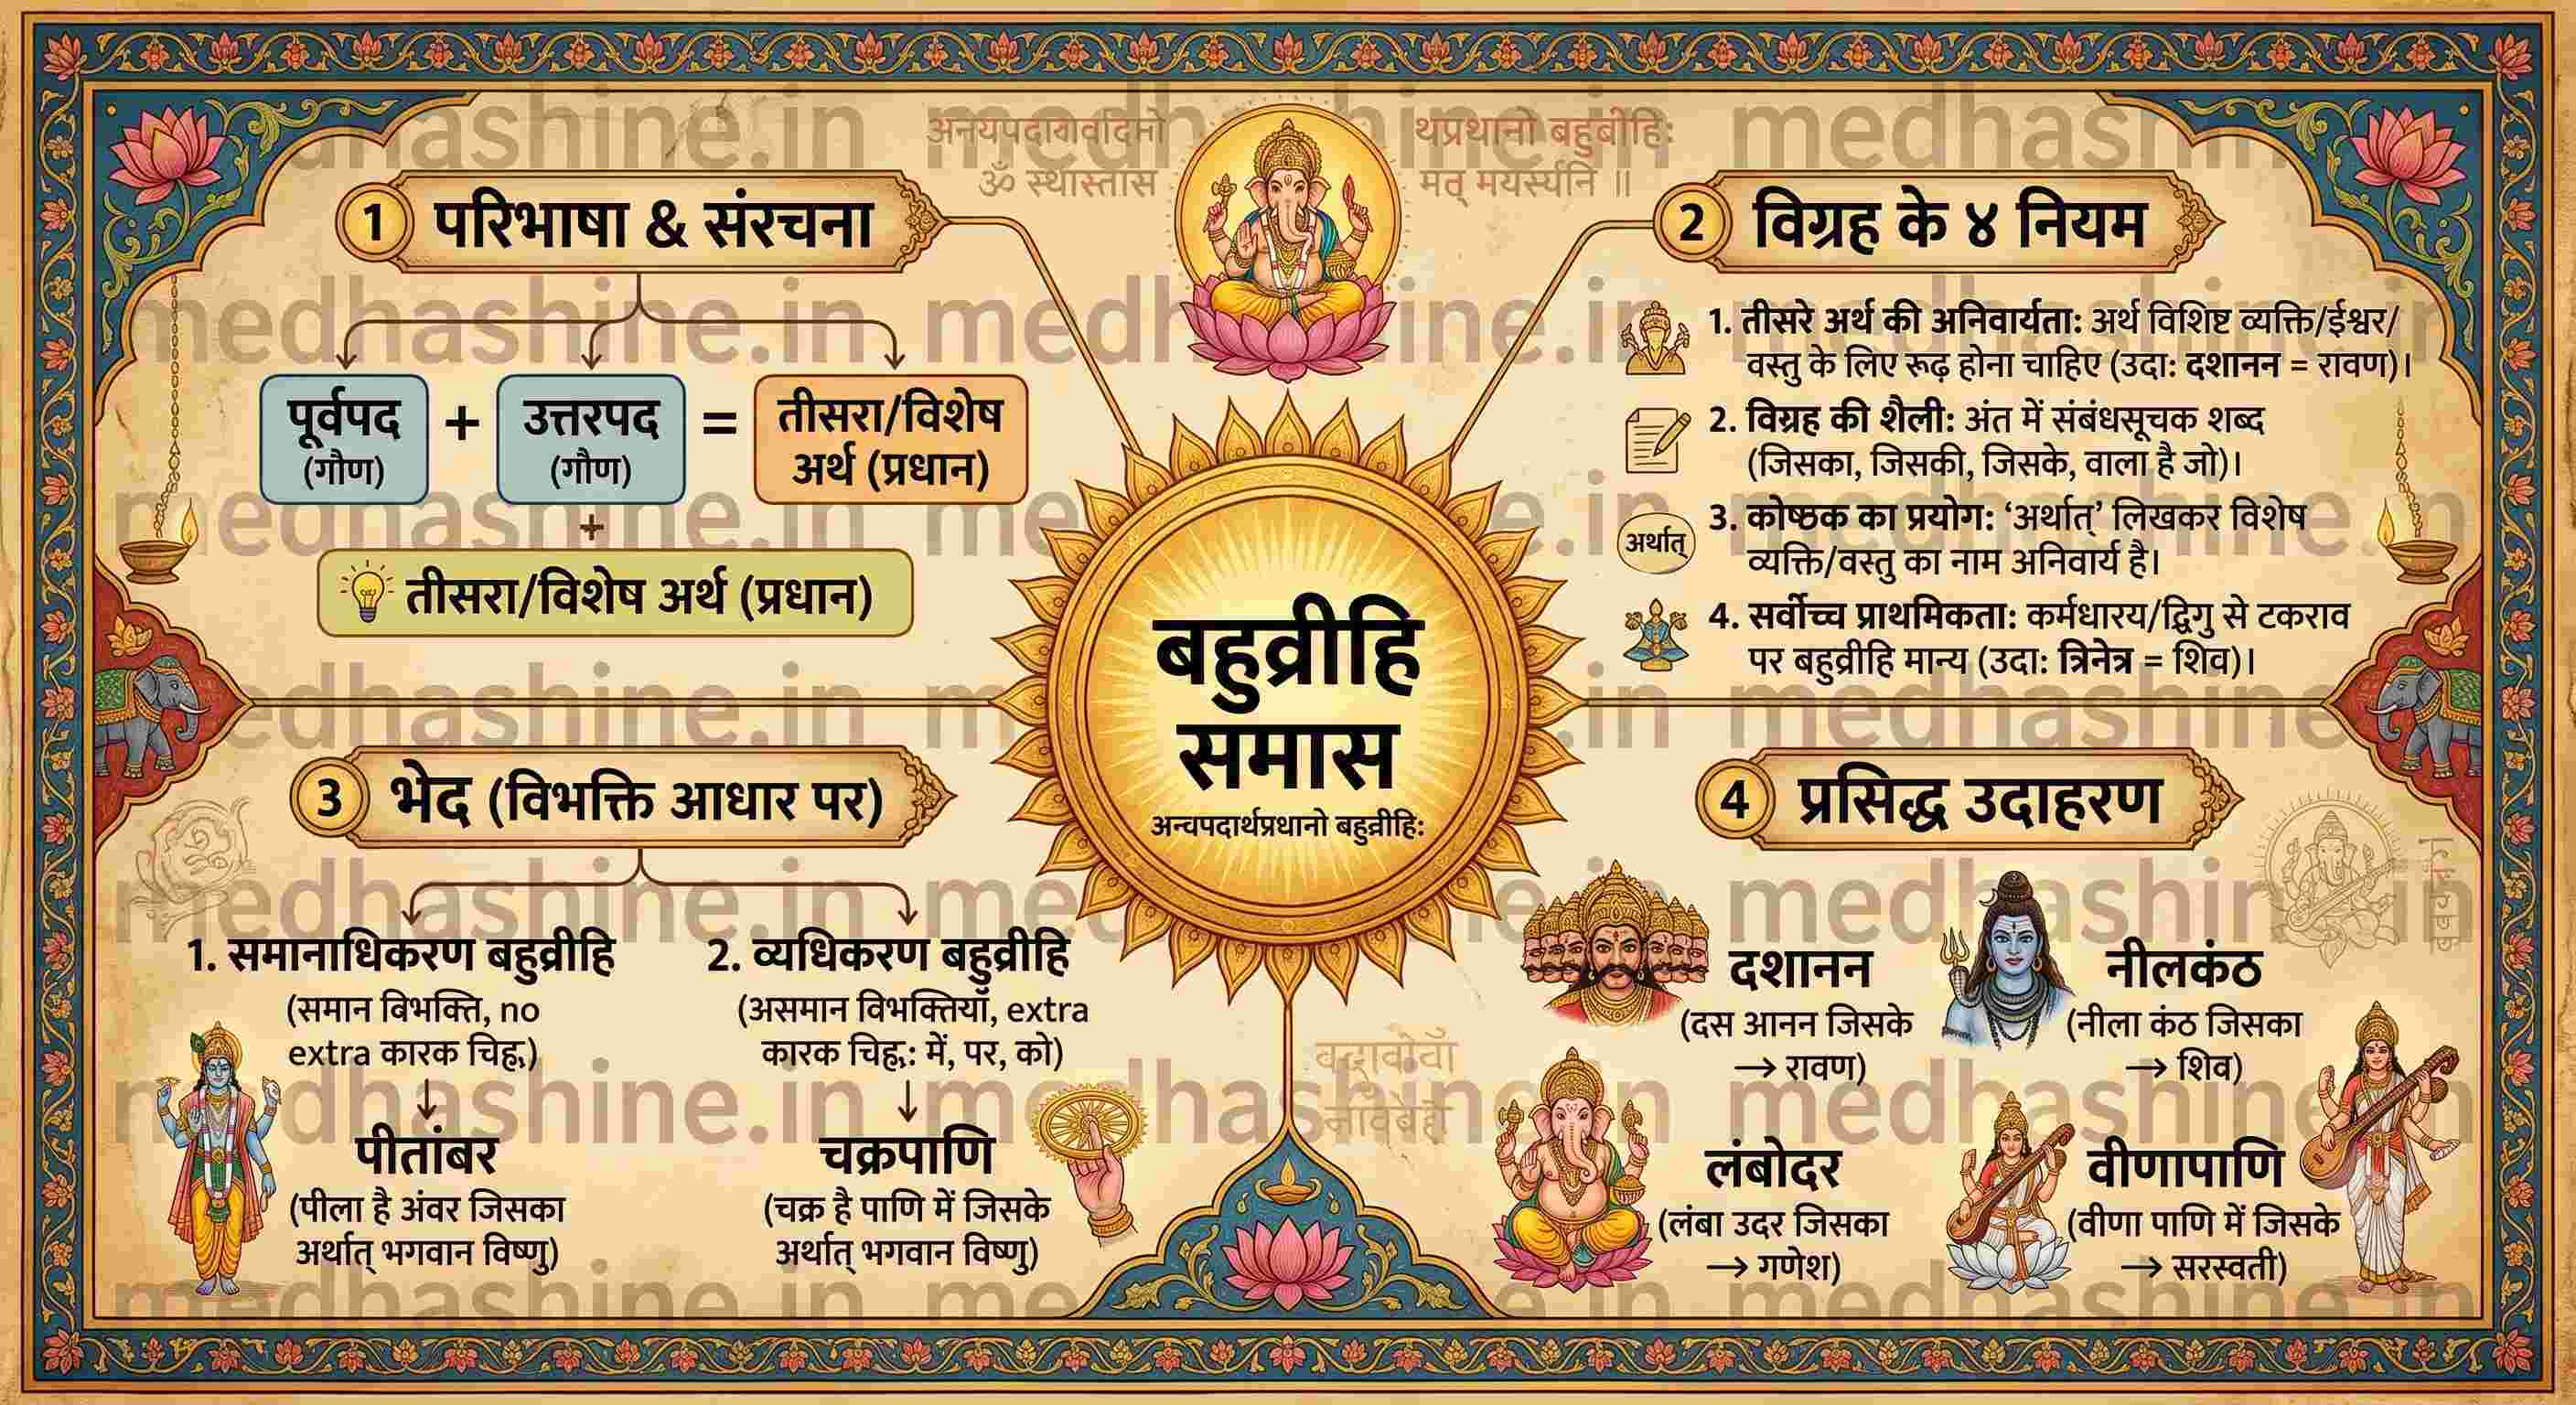 medhashine.in
1 परिभाषा & संरचना
पूर्वपद
(गौण)
+
उत्तरपद
(गौण)
=
तीसरा/विशेष
अर्थ (प्रधान)
+
तीसरा/विशेष अर्थ (प्रधान)
2 विग्रह के ४ नियम
1. तीसरे अर्थ की अनिवार्यता: अर्थ विशिष्ट व्यक्ति/ईश्वर/
वस्तु के लिए रूढ़ होना चाहिए (उदा: दशानन = रावण)।
2. विग्रह की शैली: अंत में संबंधसूचक शब्द
(जिसका, जिसकी, जिसके, वाला है जो)।
अर्थात्
3. कोष्ठक का प्रयोग: ‘अर्थात्’ लिखकर विशेष
व्यक्ति/वस्तु का नाम अनिवार्य है।
4. सर्वोच्च प्राथमिकता: कर्मधारय/द्विगु से टकराव
पर बहुव्रीहि मान्य (उदा: त्रिनेत्र = शिव)।
बहुव्रीहि
समास
अन्चपदार्थप्रधानो बहुव्रीहि:
3 भेद (विभक्ति आधार पर)
1. समानाधिकरण बहुव्रीहि
(समान विभक्ति, no
extra कारक चिह्न)
पीतांबर
(पीला है अंवर जिसका
अर्थात् भगवान विष्णु)
2. व्यधिकरण बहुव्रीहि
(असमान विभक्तियाँ, extra
कारक चिह्न: में, पर, को)
चक्रपाणि
(चक्र है पाणि में जिसके
अर्थात् भगवान विष्णु)
4 प्रसिद्ध उदाहरण
दशानन
(दस आनन जिसके
→ रावण)
नीलकंठ
(नीला कंठ जिसका
→ शिव)
लंबोदर
(लंबा उदर जिसका
→ गणेश)
वीणापाणि
(वीणा पाणि में जिसके
→ सरस्वती)